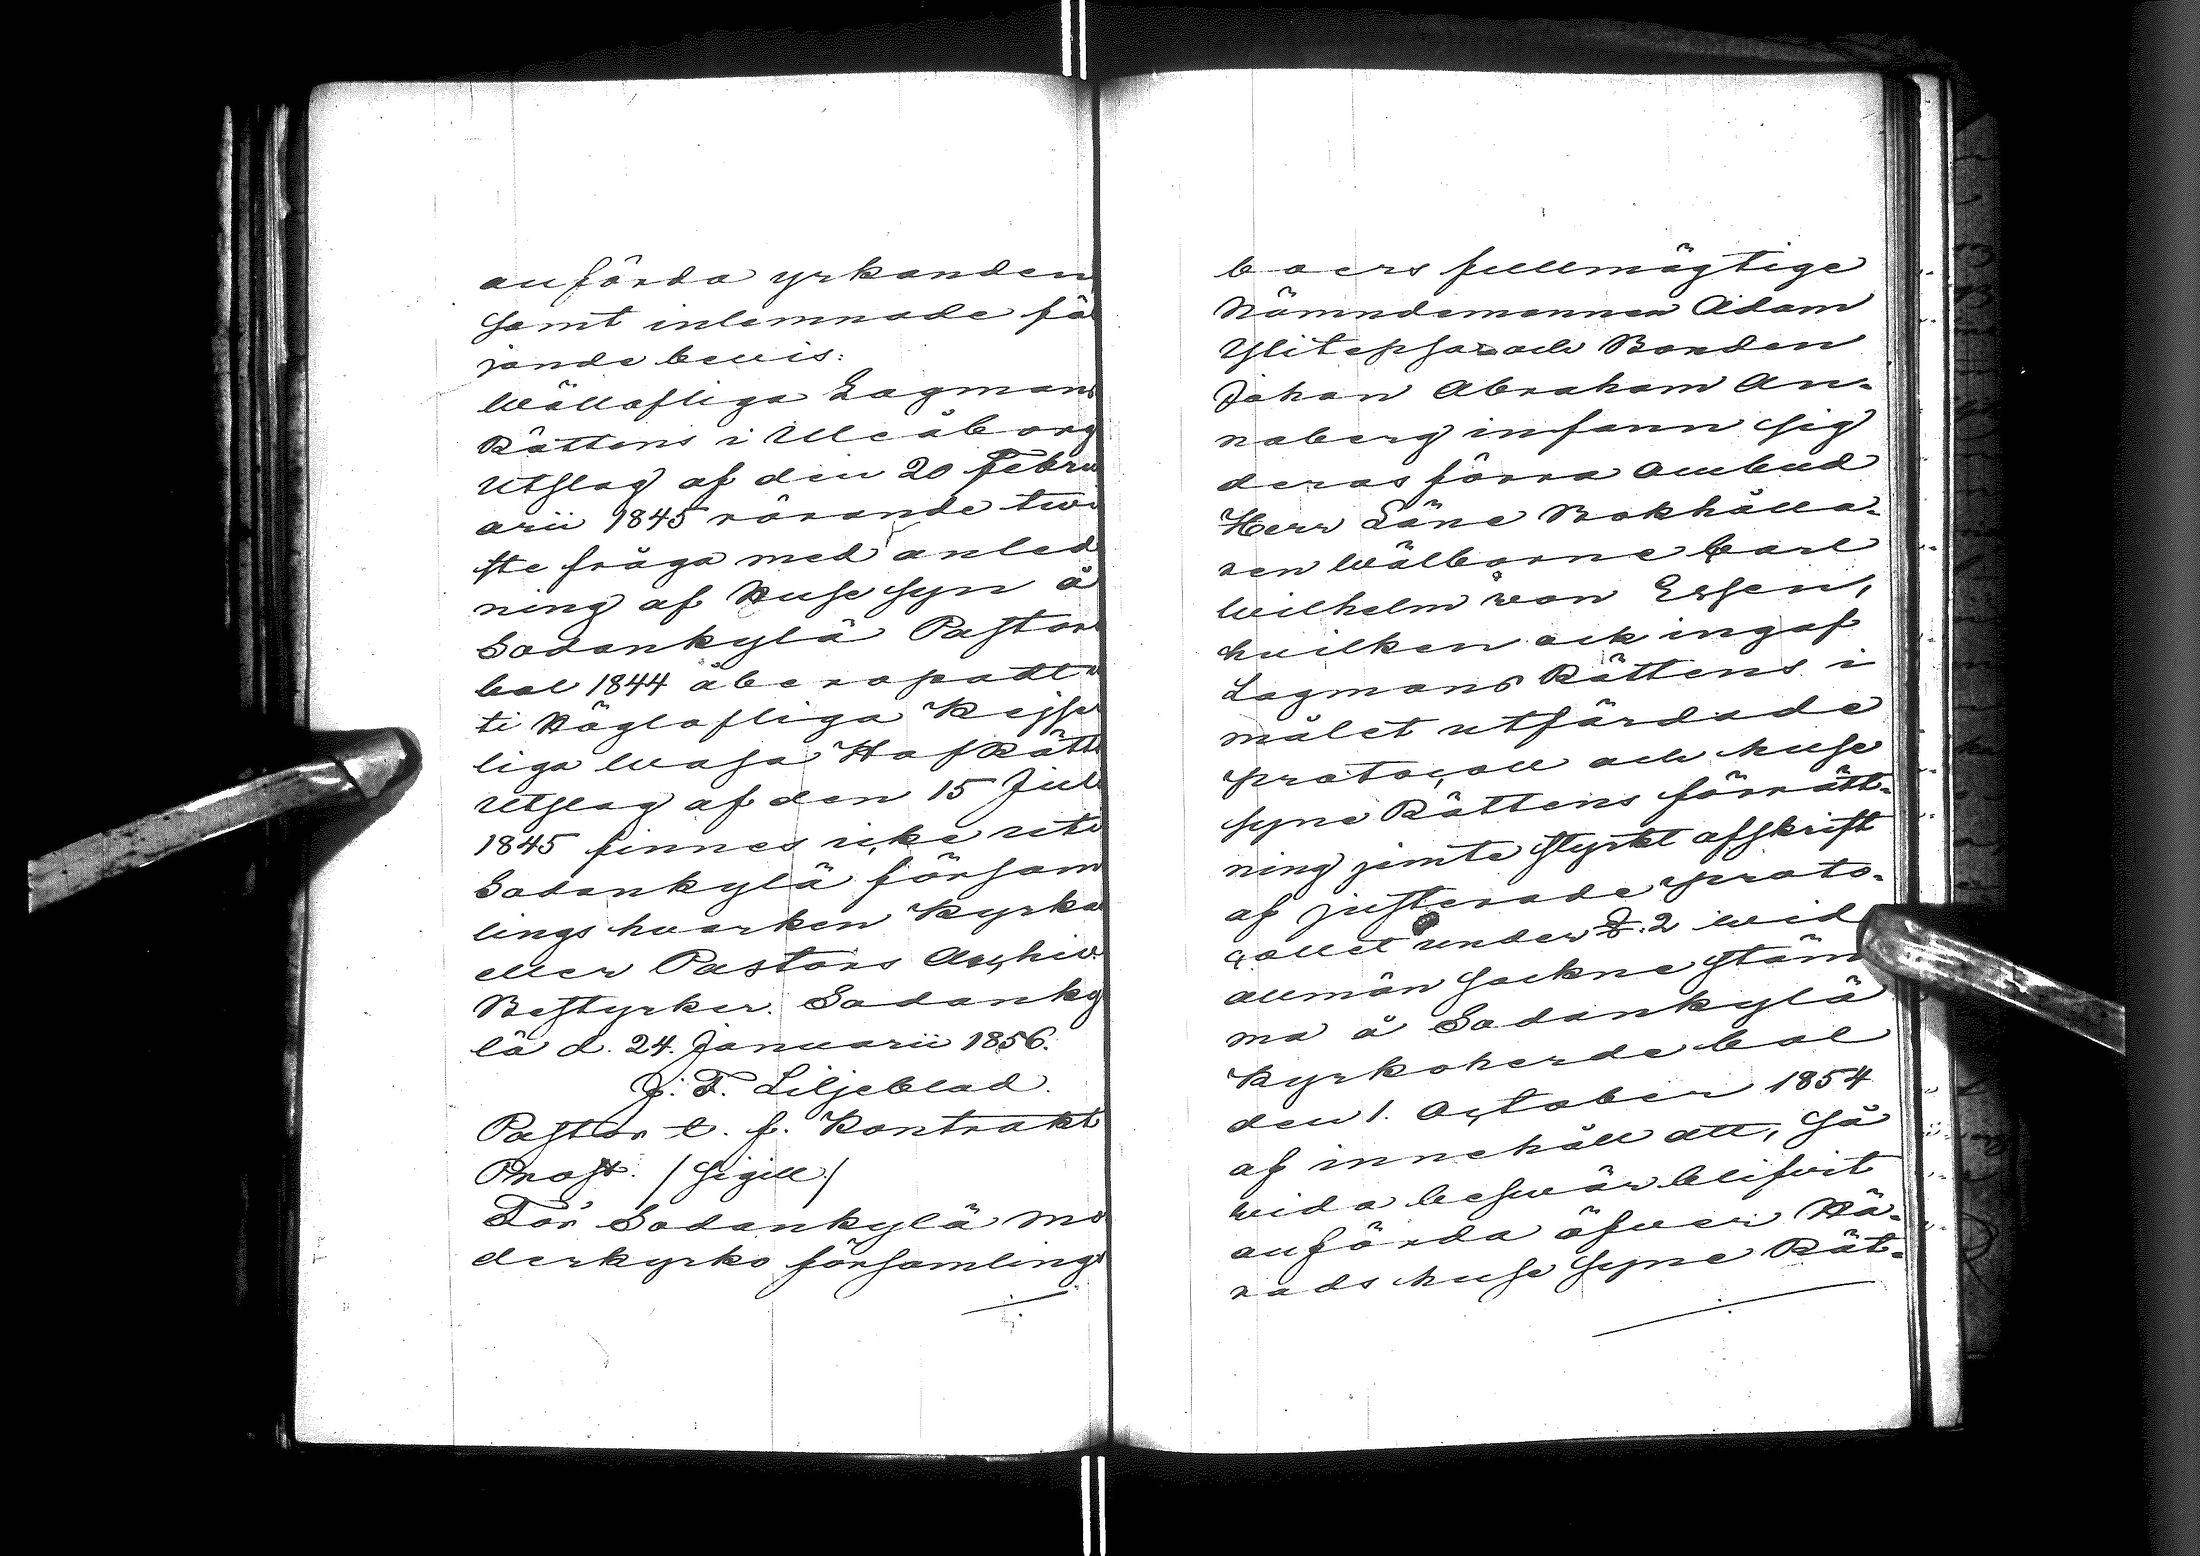 anförda yrkanden
samt inlemnade föl
jande bevis:
Wällofliga Lagmans
Rättens i Uleåborg
Utslag af den 20 Febru
arii 1845 rörande twi
ste fråga med anled
ning af Huse syn å
Sodankylä Pastors
bol 1844 åberopadt
ti Höglofliga Kejser
liga Wasa HofRätts
Utslag af den 15 Juli
1845 finnes icke uti
Sodankylä försam
lings hvarken Kyrko
eller Pastors Archiv.
Bestyrker. Sodanky
lä d. 24. Januarii 1856.
J. F. Liljeblad.
Pastor t. f. Kontrakt
Prost. / Sigill /
För Sodankylä mo
derkyrko församlings
boers fullmägtige
Nämndemannen Adam
Ylitepsa och Bonden
Johan Abraham An-
naberg infann sig
deras förra Ombud
Herr Läne Bokhålla-
ren Wälborne Carl
Wilhelm von Essen,
hvilken ock ingaf
Lagmans Rättens i
målet utfärdade
protocoll och huse
syne Rättens förrätt-
ning jemte styrkt afskrift
af justerade proto-
collet under §. 2 wid
allmän sockne stäm
ma å Sodankylä
Kyrkoherde bol
den 1. October 1854
af innehåll att, så
vida beswär blifvit
anförda öfwer Hä-
rads huse syne Rät-